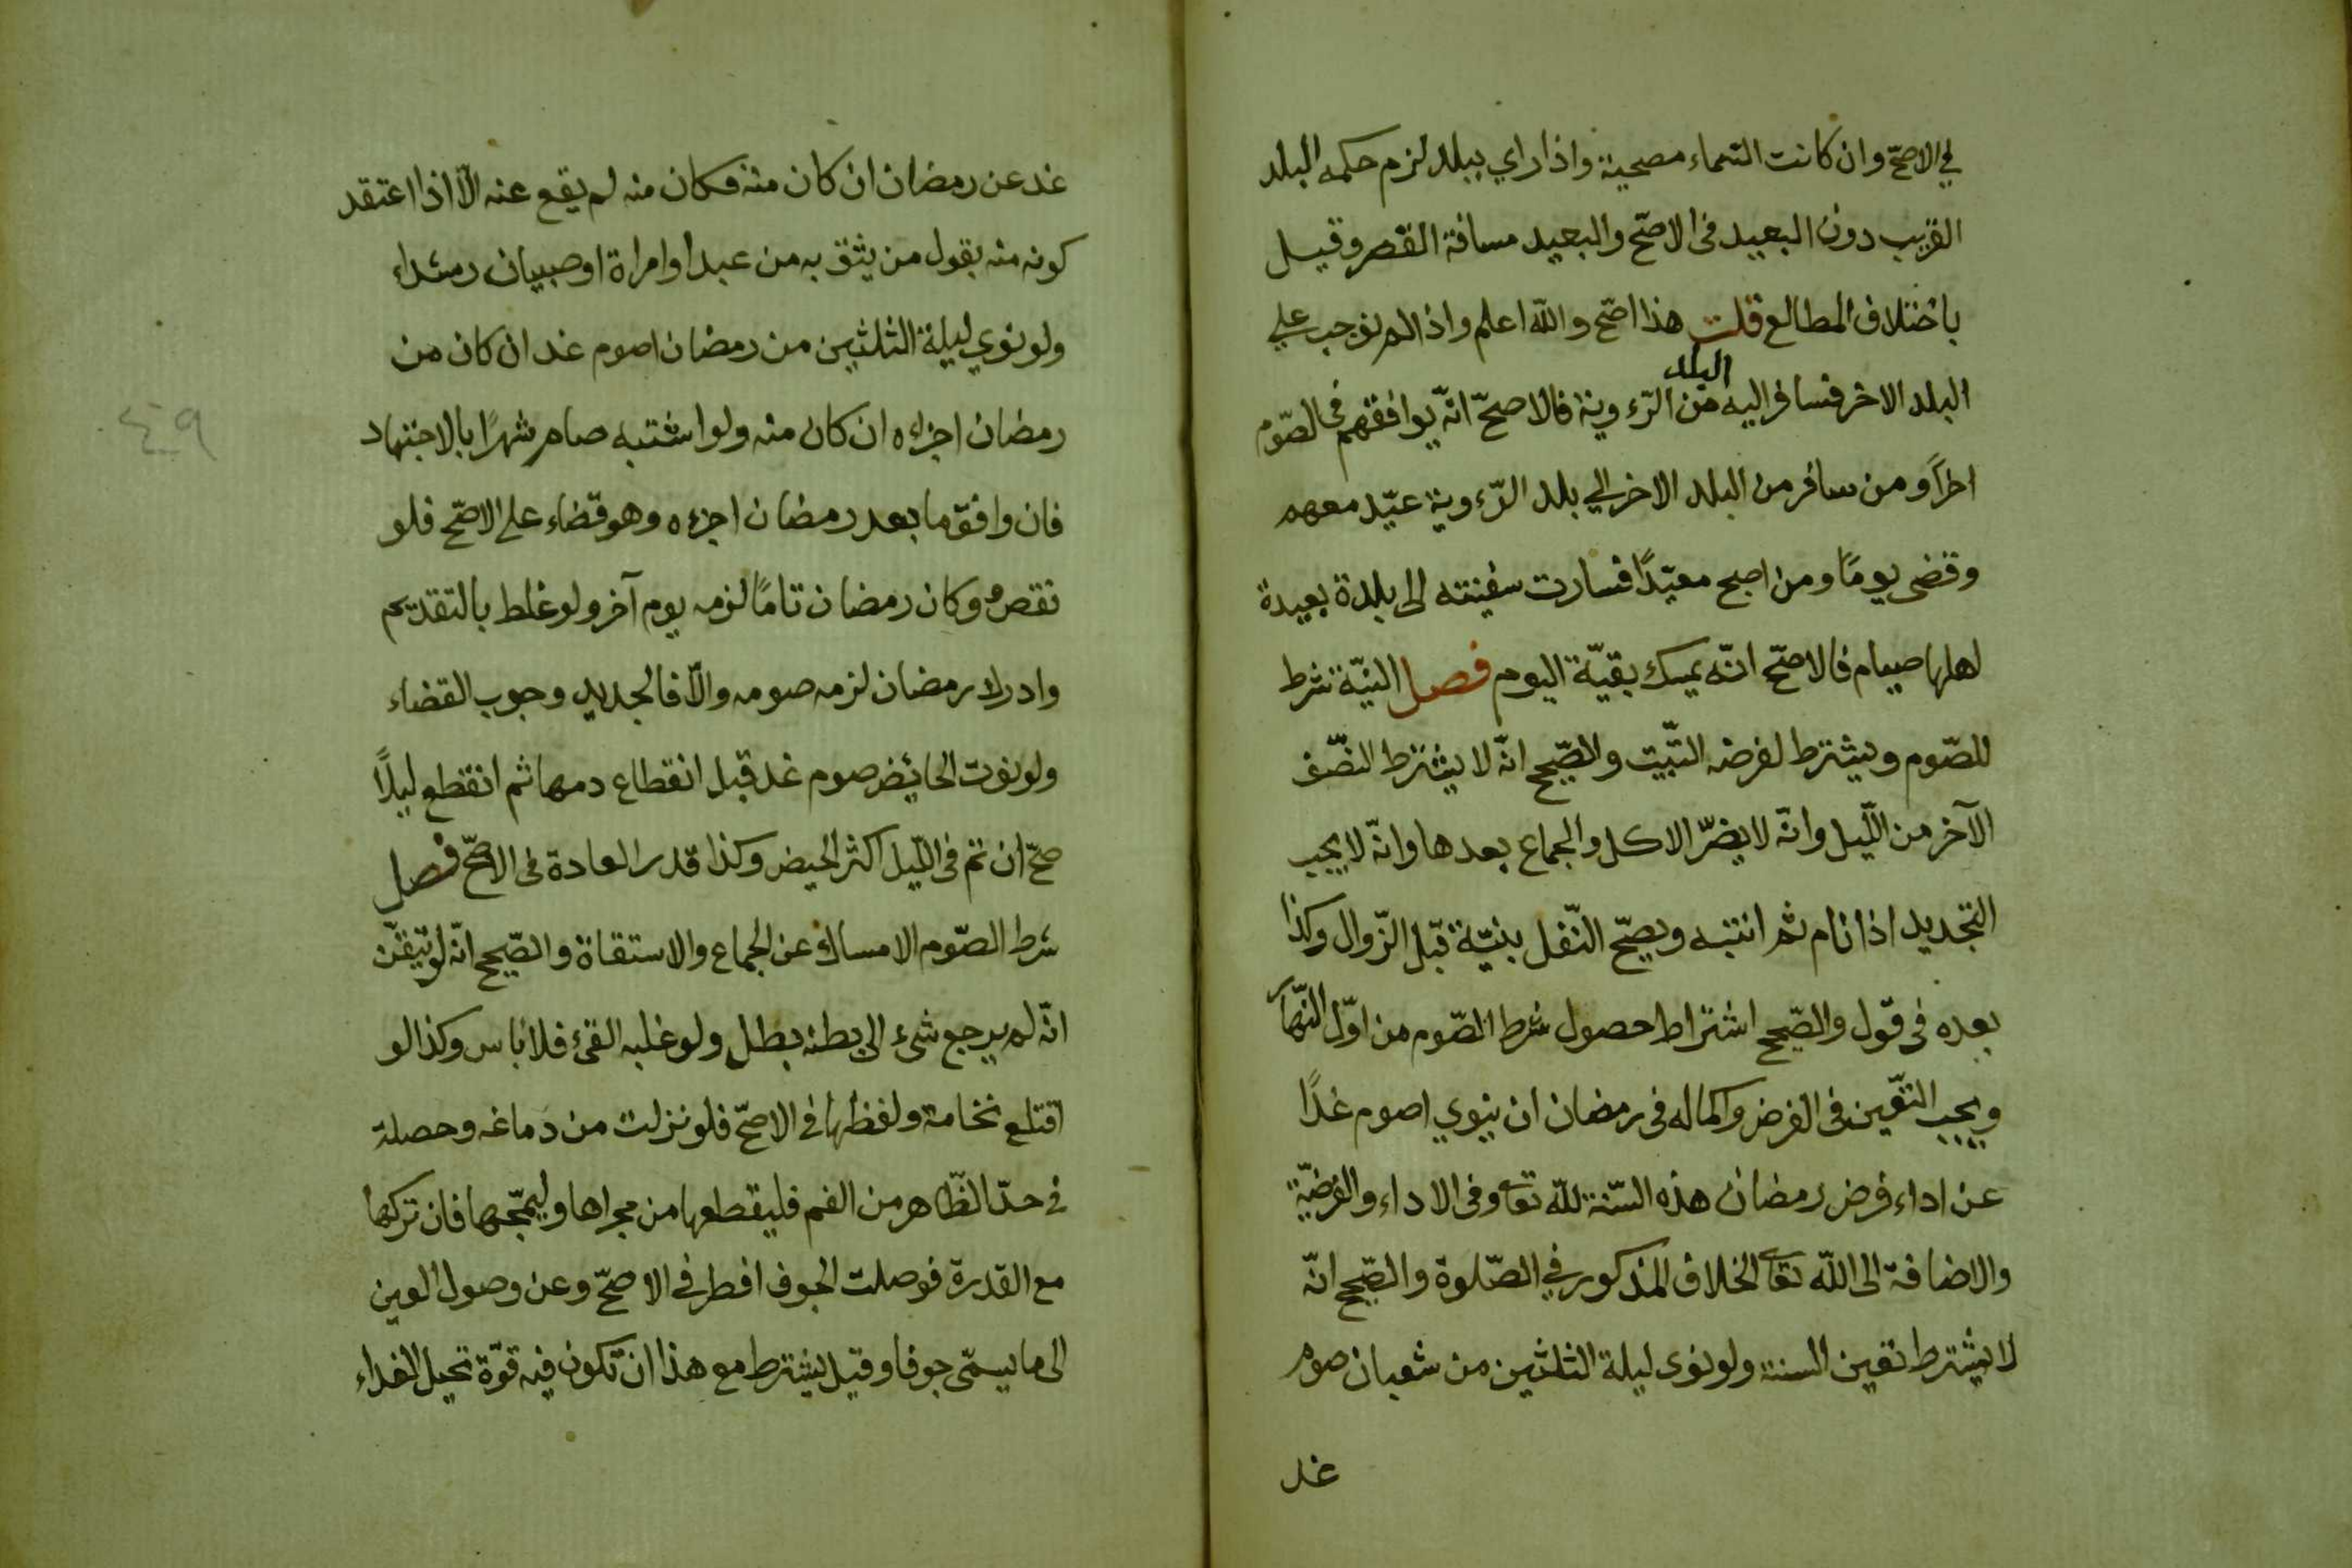 في الاصحّ وان كانت السّماء مصحية واذا راي ببلد لزم حكمه البلد
القريب دون البعيد في الاصحّ والبعيد مسافة القصر وقيل
باختلاف المطالع قلت هذا اصحّ والله اعلم واذا لم نوجب علي
البلد
البلد الاخر فسافر اليه من الرّءوية فالاصحّ انّه يوافقهم في الصّوم
اخراً ومن سافر من البلد الاخر الي بلد الرّءوية عيّد معهم
وقضى يومًا ومن اصبح معيّدًا فسارت سفينته الى بلدة بعيدة
اهلها صيام فالاصحّ انّه يمسك بقيّة اليوم فصل النيّة شرط
للصّوم ويشترط لفرضه التّبيت والصّحيح انّه لا يشترط النّصف
الآخر من اللّيل وانّه لا يضرّ الاكل والجماع بعدها وانّه لا يجب
التجديد اذا نام ثم انتبه ويصحّ النّفل بنيّة قبل الزّوال وكذا
بعده في قول والصّحيح اشتراط حصول شرط الصّوم من اوّل النّهار
ويجب التّعين في الفرض واكماله في رمضان ان ينوي اصوم غدًا
عن اداء فرض رمضان هذه السّنة للّه تعا وفي الاداء والفرضيّة
والاضافة الى اللّه تعا الخلاف المذكور في الصّلوة والصّحيح انّه
لا يشترط تعين السنة ولو نوى ليلة الثلثين من شعبان صوم
غد
غد عن رمضان ان كان منه فكان منه لم يقع عنه الّا اذا اعتقد
كونه منه بقول من يثق به من عبد او امراة او صبيان رشداء
ولو نوي ليلة الثلثين من رمضان اصوم غد ان كان من
رمضان اجزاه ان كان منه ولو اشتبه صام شهرًا بالاجتهاد
فان وافق ما بعد رمضان اجزءه وهو قضاء على الاصحّ فلو
نقص وكان رمضان تامًا لزمه يوم آخر ولو غلط بالتقديم
وادرك رمضان لزمه صومه والّا فالجديد وجوب القضاء
ولو نوت الحائيض صوم غد قبل انقطاع دمها ثم انقطع ليلًا
صحّ ان تم في اللّيل اكثر الحيض وكذا قدر العادة في الاصحّ فصل
شرط الصّوم الامساك عن الجماع والاستقاة والصّحيح انّه لو تيقّن
انّه لم يرجع شىء الى بطنه بطل ولو غلبه القىء فلا باس وكذا لو
اقتلع نخامة ولفظها في الاصحّ فلو نزلت من دماغه وحصلة
في حدّ الظّاهر من الفم فليقطعها من مجراها وليمجّها فان تركها
مع القدرة فوصلت الجوف افطر في الاصحّ وعن وصول العين
الى ما يسمّى جوفا وقيل يشترط مع هذا ان تكون فيه قوّة تحيل الغداء
٤٩